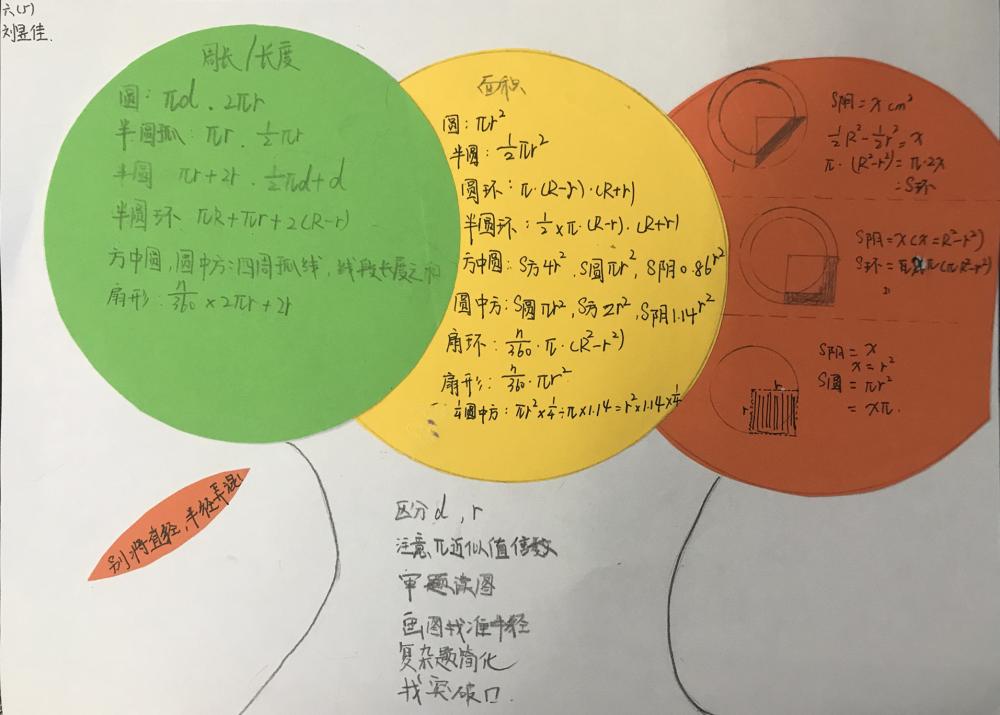 六(5)
刘昱佳.
周长/长度
圆: πd . 2πr
半圆弧: πr . ½πr
半圆 πr+2r . ½πd+d
半圆环 πR+πr+2(R-r)
方中圆,圆中方:四周弧线 线段长度之和
扇形: n/360 × 2πr+2r
面积
圆: πr²
半圆: ½πr²
圆环: π·(R-r)·(R+r)
半圆环: ½×π·(R-r)·(R+r)
方中圆: S方4r², S圆πr², S阴0.86r²
圆中方: S圆πr², S方2r², S阴1.14r²
扇环: n/360·π·(R²-r²)
扇形: n/360·πr²
¼圆中方: πr²×¼÷π×1.14=r²×1.14×¼
S阴=x cm²
½R²-½r²=x
π·(R²-r²)=π·2x
=S环
S阴=x(x=R²-r²)
S环=π(πR²-r²)
S阴=x
x=r²
S圆=πr²
=xπ.
r
r
别将直径,半径弄混!
区分d,r
注意π近似值倍数
审题读图
画图找准半径
复杂题简化
找突破口.